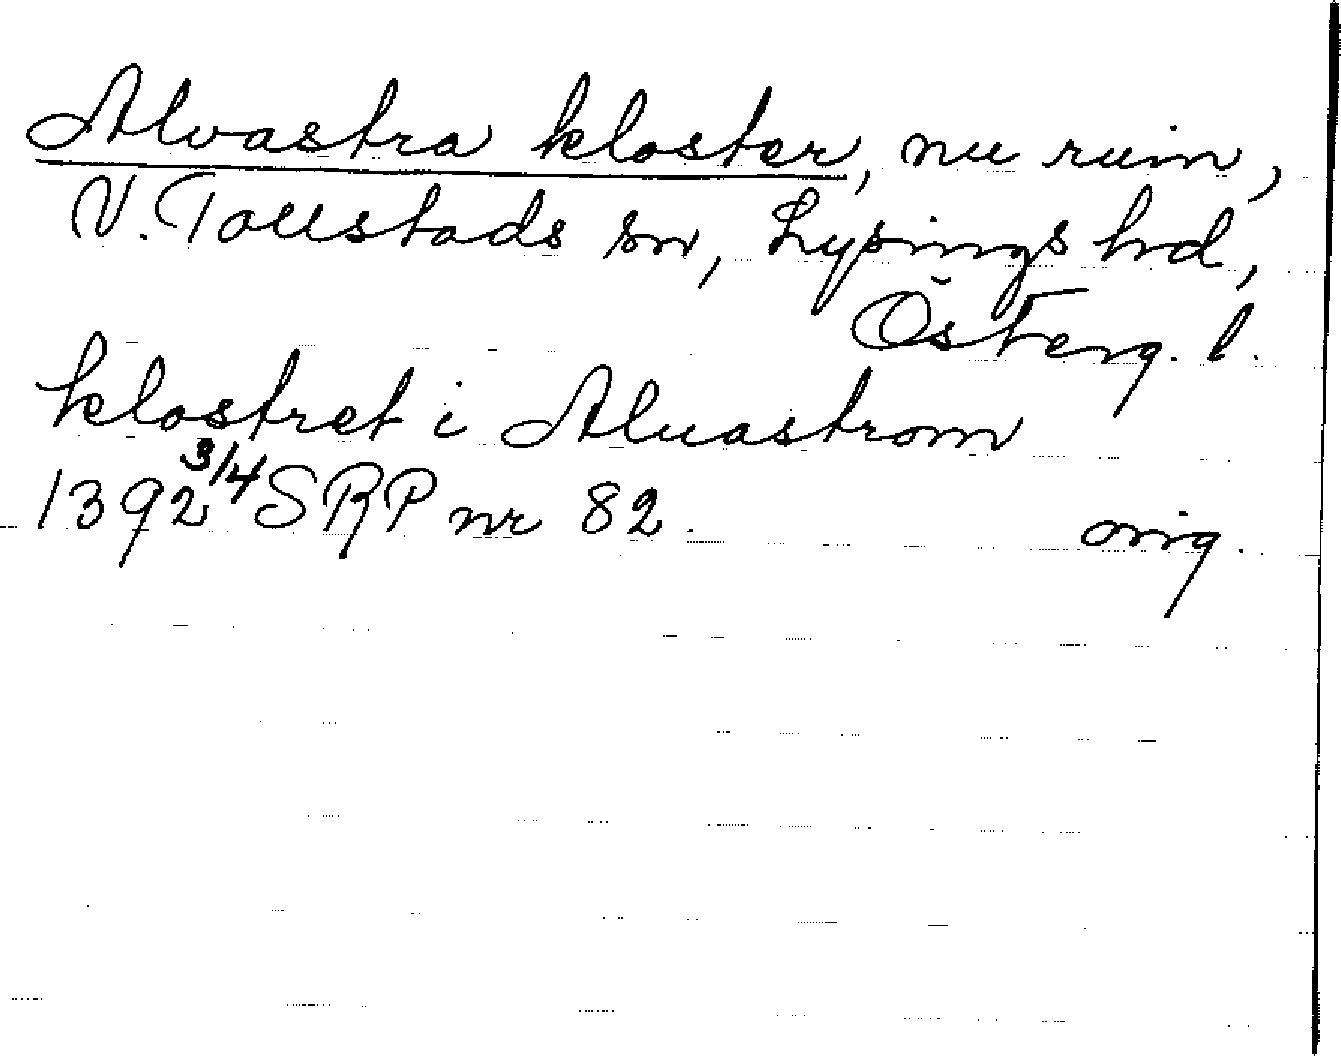 Alvastra kloster, nu ruin,
V. Tollstads sn, Lysings hd,
Österg. l.
klostret i Aluastrom
1392 3/4 SRP nr 82. orig.